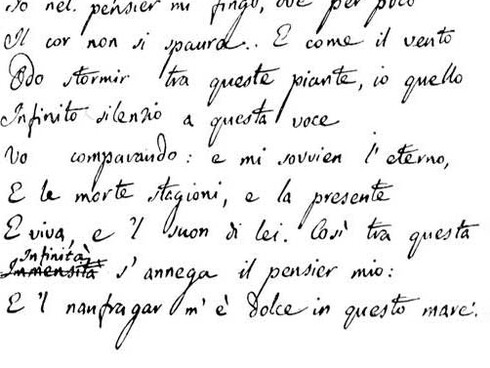 Io nel pensier mi fingo, ove per poco
Il cor non si spaura.. E come il vento
Odo stormir tra queste piante, io quello
Infinito silenzio a questa voce
Vo comparando: e mi sovvien l'eterno,
E le morte stagioni, e la presente
E viva, e 'l suon di lei. Così tra questa
Infinità
Immensità s'annega il pensier mio:
E 'l naufragar m'è dolce in questo mare.